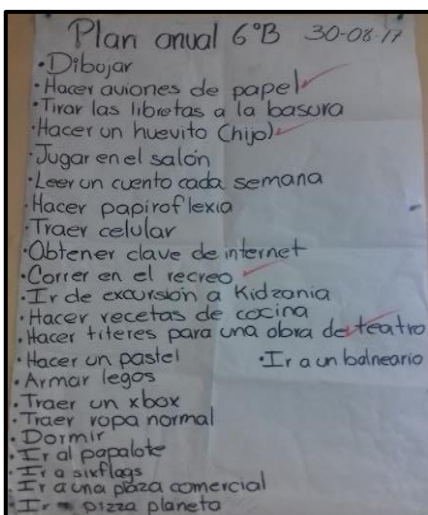 Plan anual 6°B 30-08-17
• Dibujar
• Hacer aviones de papel
• Tirar las libretas a la basura
• Hacer un huevito (hijo)
• Jugar en el salón
• Leer un cuento cada semana
• Hacer papiroflexia
• Traer celular
• Obtener clave de internet
• Correr en el recreo
• Ir de excursión a Kidzania
• Hacer recetas de cocina
• Hacer títeres para una obra de teatro
• Hacer un pastel • Ir a un balneario
• Armar legos
• Traer un xbox
• Traer ropa normal
• Dormir
• Ir al papalote
• Ir a sixflags
• Ir a una plaza comercial
• Ir a pizza planeta